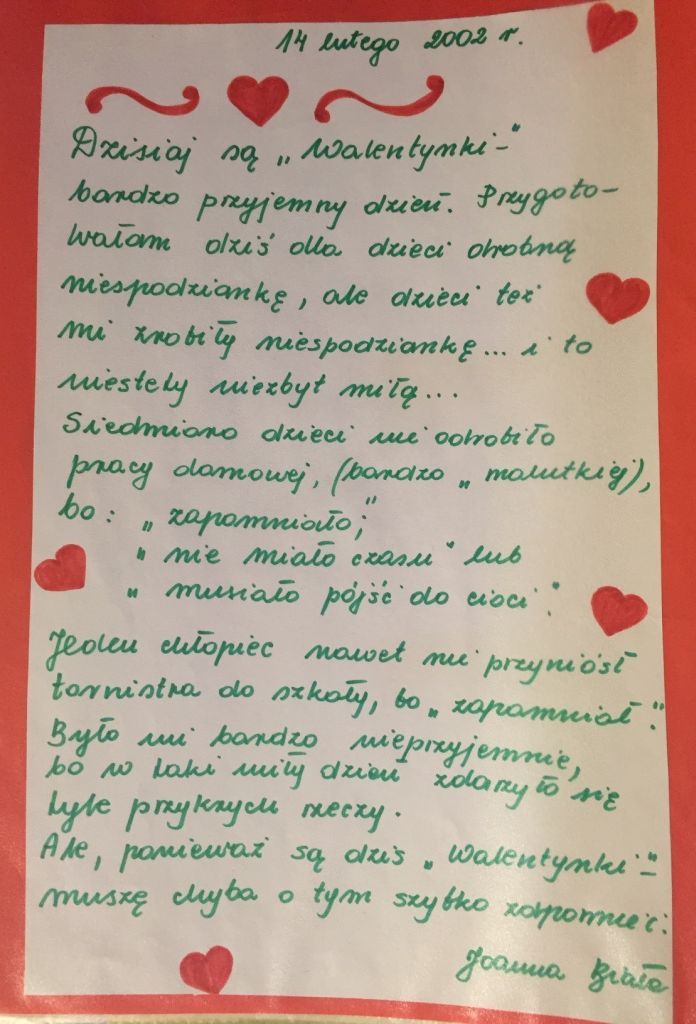 14 lutego 2002 r.
Dzisiaj są „Walentynki"-
bardzo przyjemny dzień. Przygoto-
wałam dziś dla dzieci drobną
niespodziankę, ale dzieci też
mi zrobiły niespodziankę... i to
niestety niezbyt miłą...
Siedmioro dzieci nie odrobiło
pracy domowej, (bardzo „malutkiej),
bo: „zapomniało;"
„nie miało czasu" lub
„musiało pójść do cioci".
Jeden chłopiec nawet nie przyniósł
tornistra do szkoły, bo „zapomniał".
Było mi bardzo nieprzyjemnie,
bo w taki miły dzień zdarzyło się
tyle przykrych rzeczy.
Ale, ponieważ są dziś „Walentynki"-
muszę chyba o tym szybko zapomnieć.
Joanna Biała